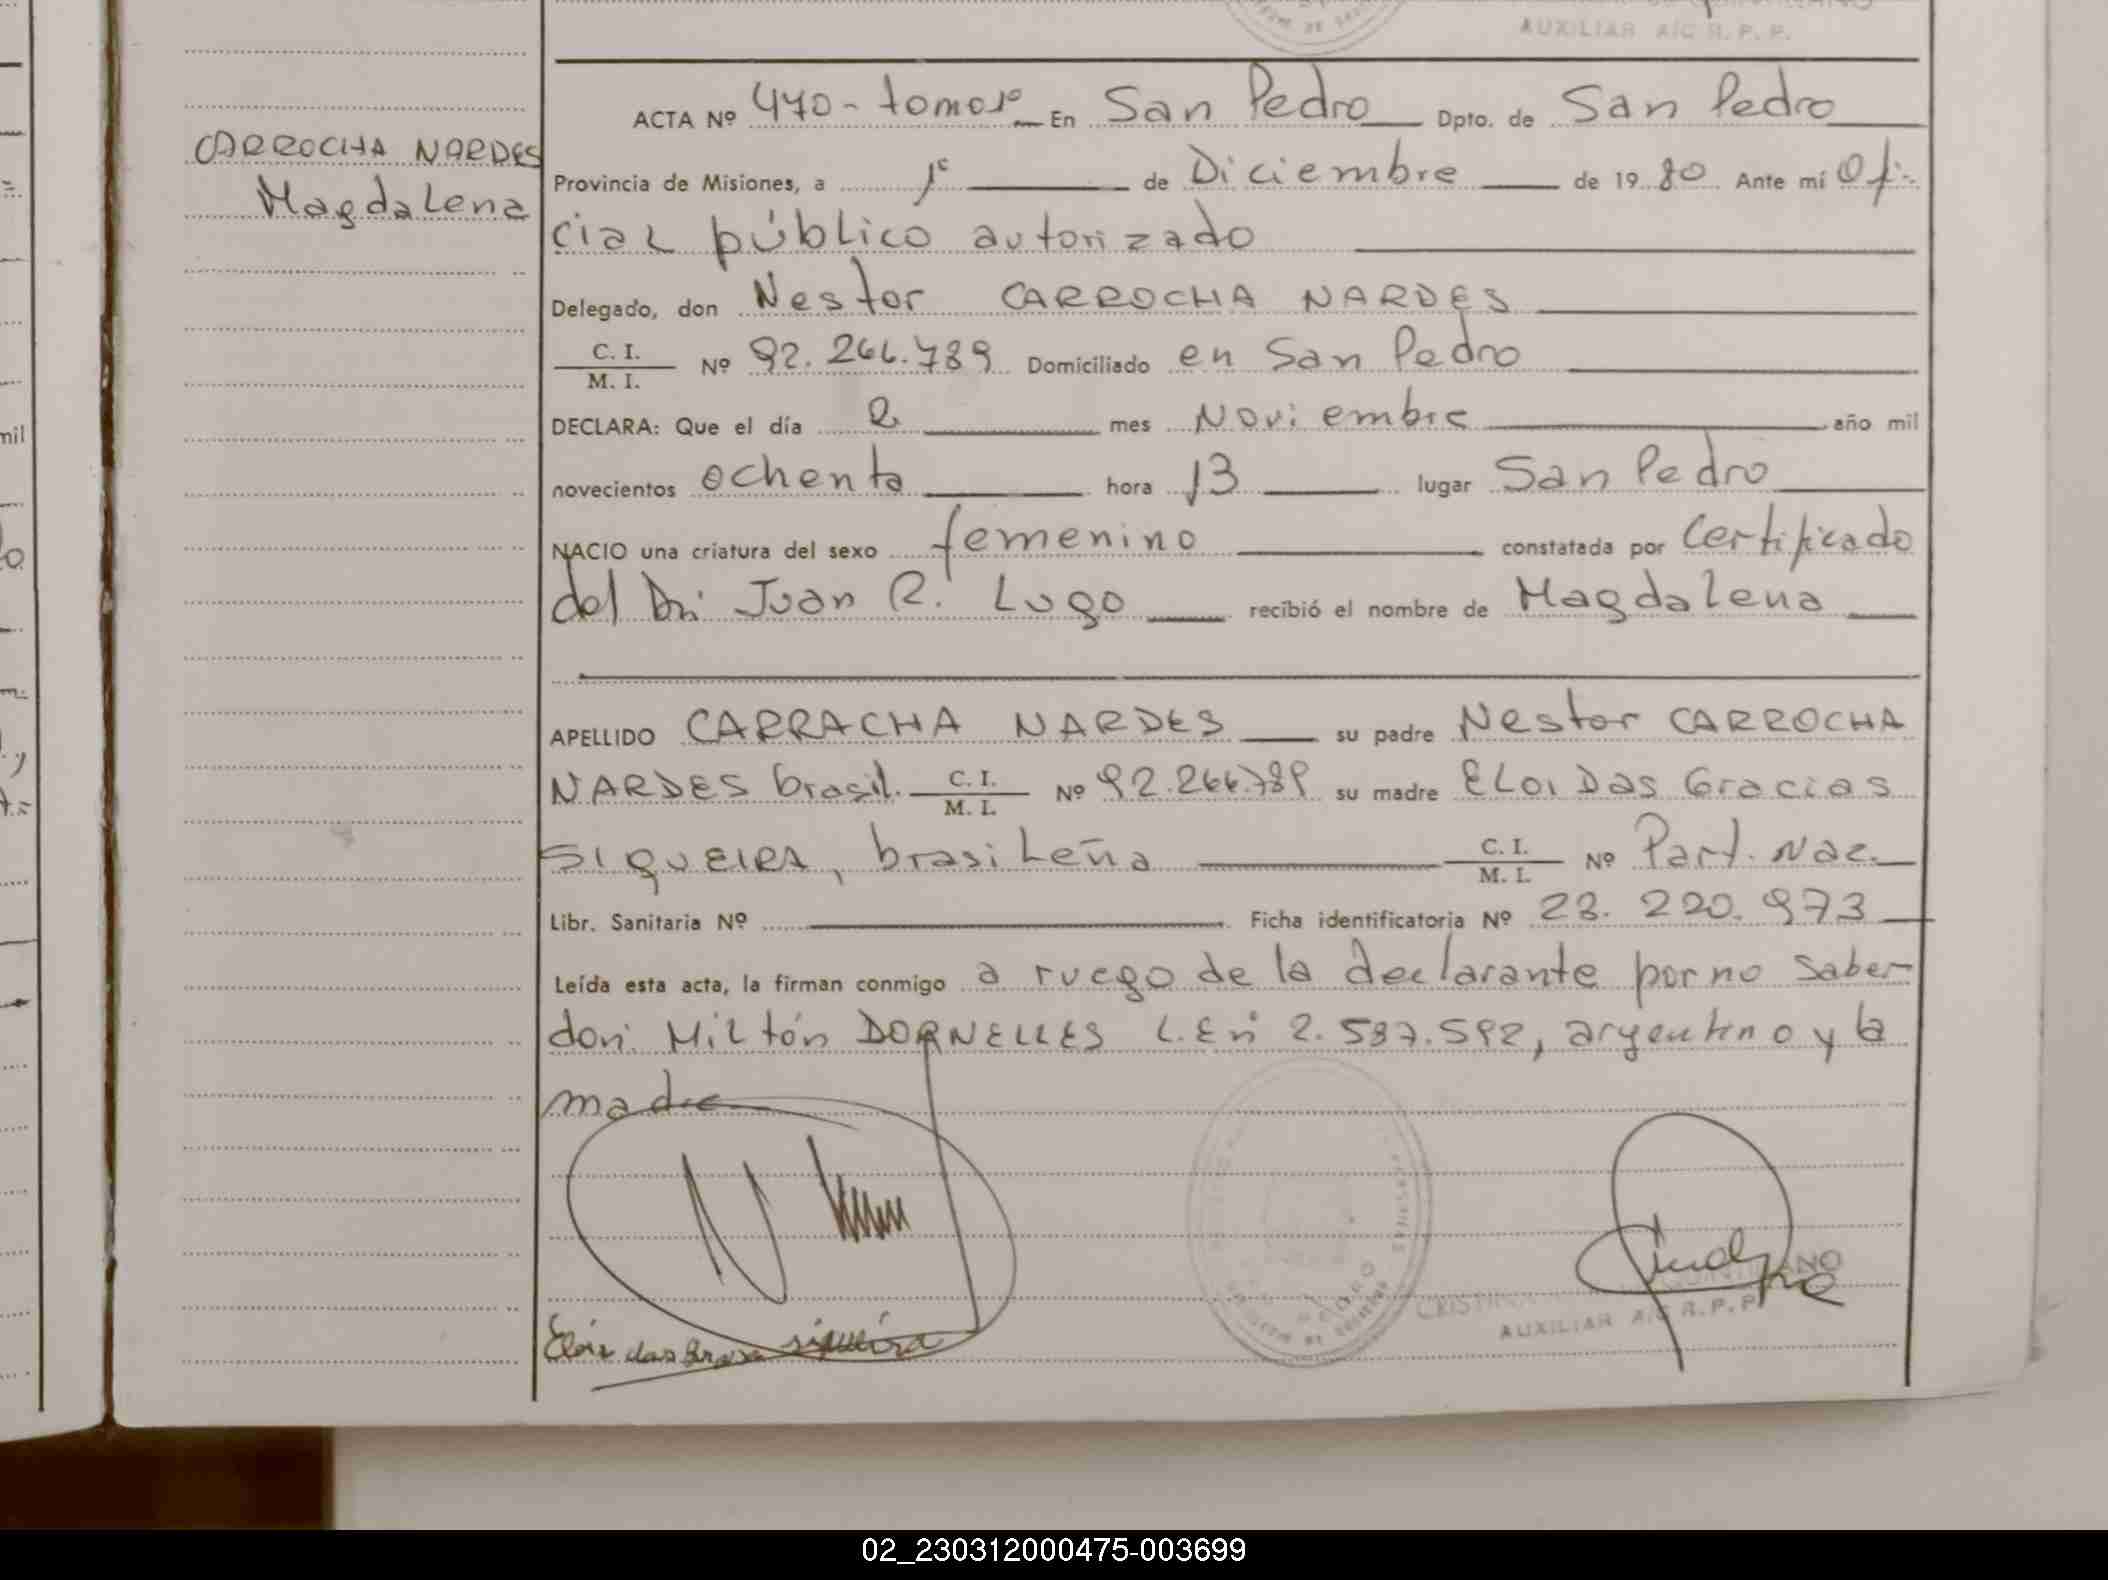 AUXILIAR A/C R. P. P.
CARROCHA NARDES
Magdalena
ACTA Nº 470 - tomo 1º En San Pedro Dpto. de San Pedro
Provincia de Misiones, a 1º de Diciembre de 19 80 Ante mí Ofi-
cial público autorizado
Delegado, don Nestor CARROCHA NARDES
C. I.
M. I. Nº 92.266.789 Domiciliado en San Pedro
DECLARA: Que el día 2 mes Noviembre año mil
novecientos ochenta hora 13 lugar San Pedro
NACIO una criatura del sexo femenino constatada por Certificado
del Dr. Juan R. Lugo recibió el nombre de Magdalena
APELLIDO CARRACHA NARDES su padre Nestor CARROCHA
NARDES brasil. C. I.
M. I. Nº 92.266.789 su madre Eloi Das Gracias
SIQUEIRA, brasileña C. I.
M. I. Nº Part. Nac.
Libr. Sanitaria Nº Ficha identificatoria Nº 28.220.973
Leída esta acta, la firman conmigo a ruego de la declarante por no saber
don: Miltón DORNELLES L.E.nº 2.587.592, argentino y la
madre
CRISTINA QUINTIRANO
AUXILIAR A/C R. P. P.
siqueira
mil
02_230312000475-003699